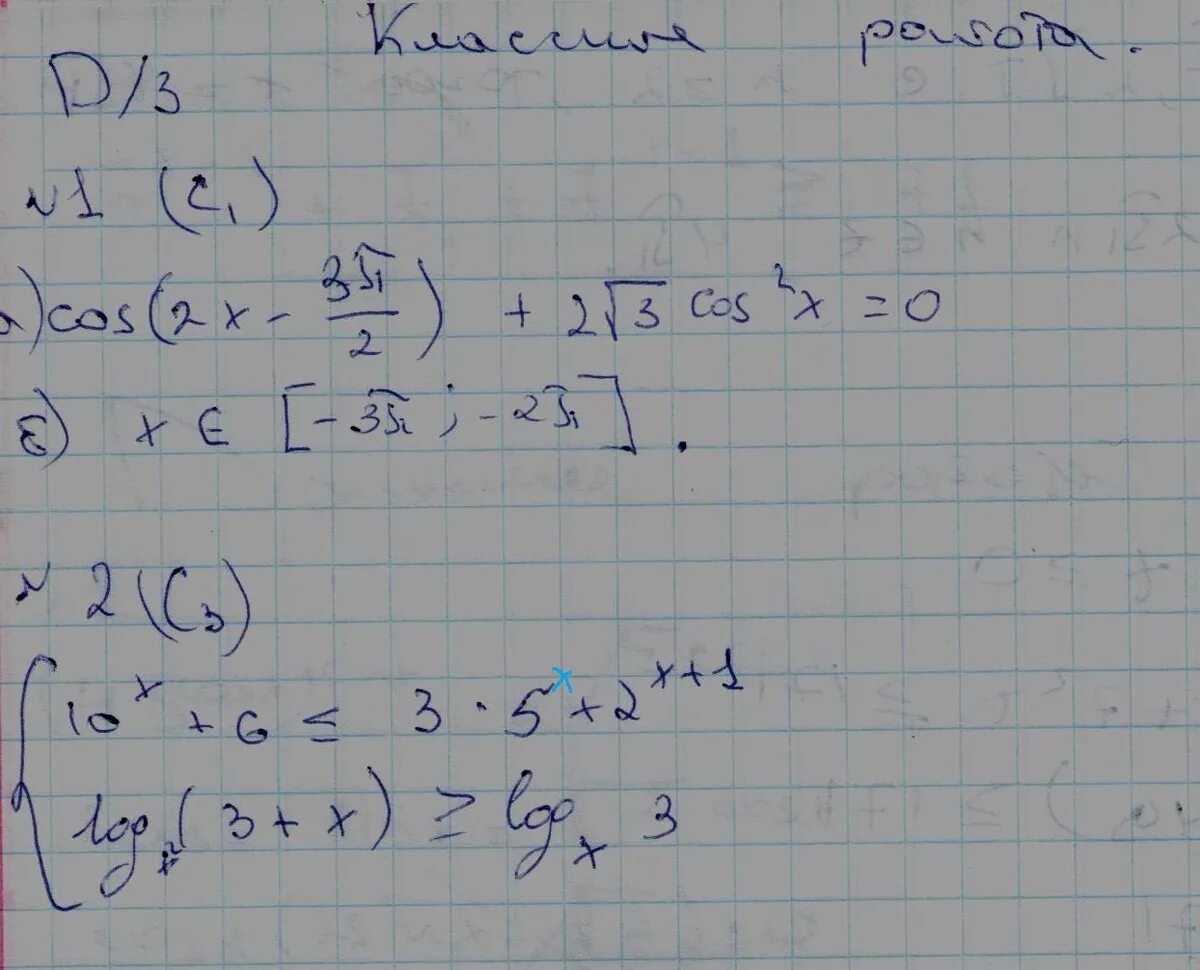 Классная работа.
D/3
№1 (C₁)
а) cos(2x - 3π/2) + 2√3 cos²x = 0
б) x ∈ [-3π; -2π].
№ 2 (C₃)
10ˣ + 6 ≤ 3 · 5ˣ + 2ˣ⁺¹
(3 + x) ≥ logₓ 3